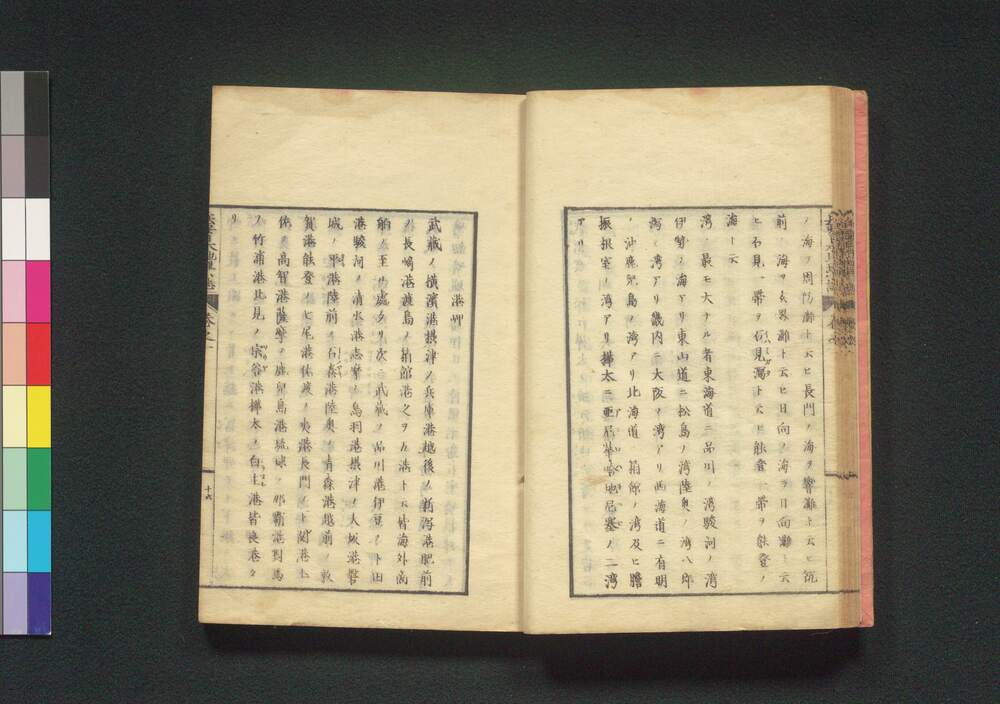 ノ海ヲ周防灘ト云ヒ長門ノ海ヲ響灘ト云ヒ筑
前ノ海ヲ玄界灘ト云ヒ日向ノ海ヲ日向灘ト云
ヒ石見一帯ヲ石見潟ト云ヒ能登一帯ヲ能登ノ
海ト云
湾ノ最モ大ナル者東海道ニ品川ノ湾駿河ノ湾
伊勢ノ海アリ東山道ニ松島ノ湾陸奥ノ湾八郎
潟ノ湾アリ畿内ニ大阪ノ湾アリ西海道ニ有明
ノ沖鹿児島ノ湾アリ北海道ニ箱館ノ湾及ヒ膽
振根室ノ湾アリ樺太ニ亜尼
地尼塞ノ二湾
アリ
港岬
武蔵ノ横濱港摂津ノ兵庫港越後ノ新潟港肥前
ノ長崎港渡島ノ箱館港之ヲ五港ト云皆海外商
舶ノ至ル處タリ次ニ武蔵ノ品川港伊豆ノ下田
港駿河ノ清水港志摩ノ鳥羽港摂津ノ大坂港磐
城ノ平港陸前ノ石巻港陸奥ノ青森港越前ノ敦
賀港能登ノ七尾港佐渡ノ夷港長門ノ下関港土
佐ノ高智港薩摩ノ鹿児島港琉球ノ那覇港對馬
ノ竹浦港北見ノ宗谷港樺太ノ白主港皆良港タ
リ
十六